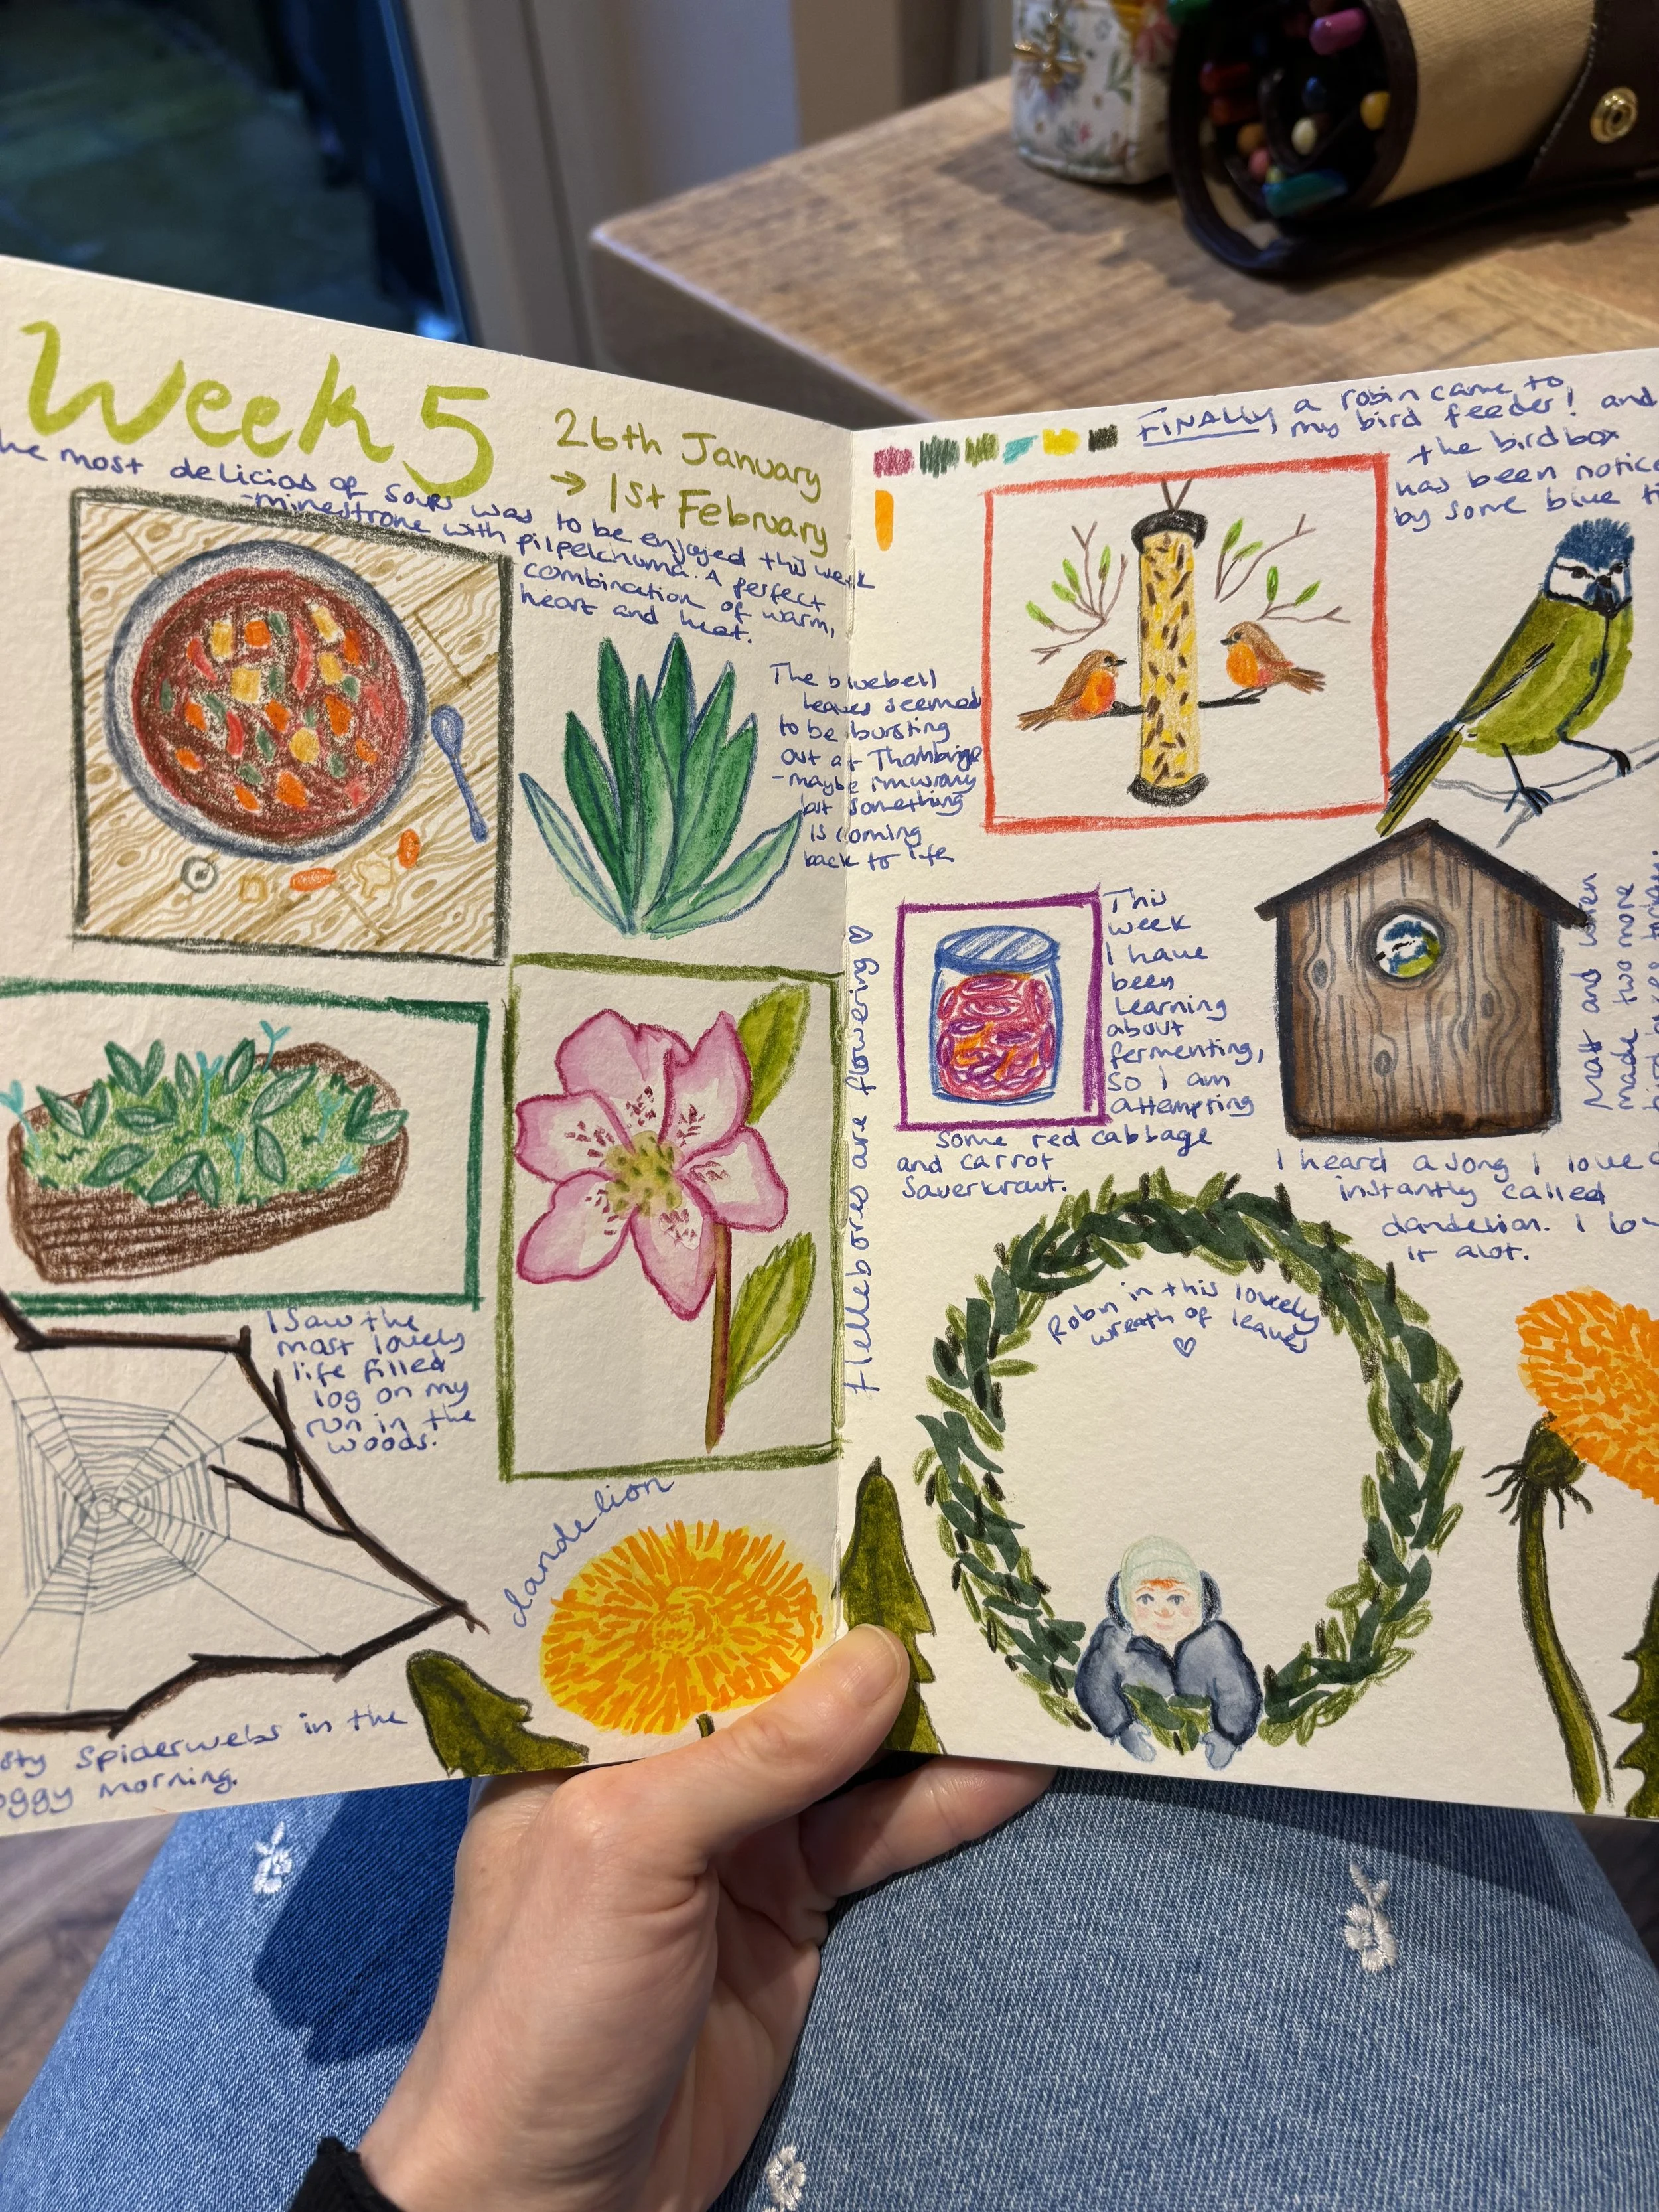 Week 5
26th January
→ 1st February
he most delicios of soups was to be enjoyed this week
-minestrone with pilpelchuma. A perfect
combination of warm,
heart and heat.
The bluebell
leaves seemed
to be bursting
out at
- maybe i'm wrong
but something
is coming
back to life
I saw the
most lovely
life filled
log on my
run in the
woods.
Hellebores are flowering ♡
dandelion
sty spiderwebs in the
oggy morning.
FINALLY, a robin came to
my bird feeder! and
the birdbox
has been notice
by some blue ti
This
week
I have
been
learning
about
fermenting,
so I am
attempting
some red cabbage
and carrot
Sauerkraut.
Matt and
made two more
I heard a song I love
instantly called
dandelion. I lov
it alot.
Robin in this lovely
wreath of leaves
♡